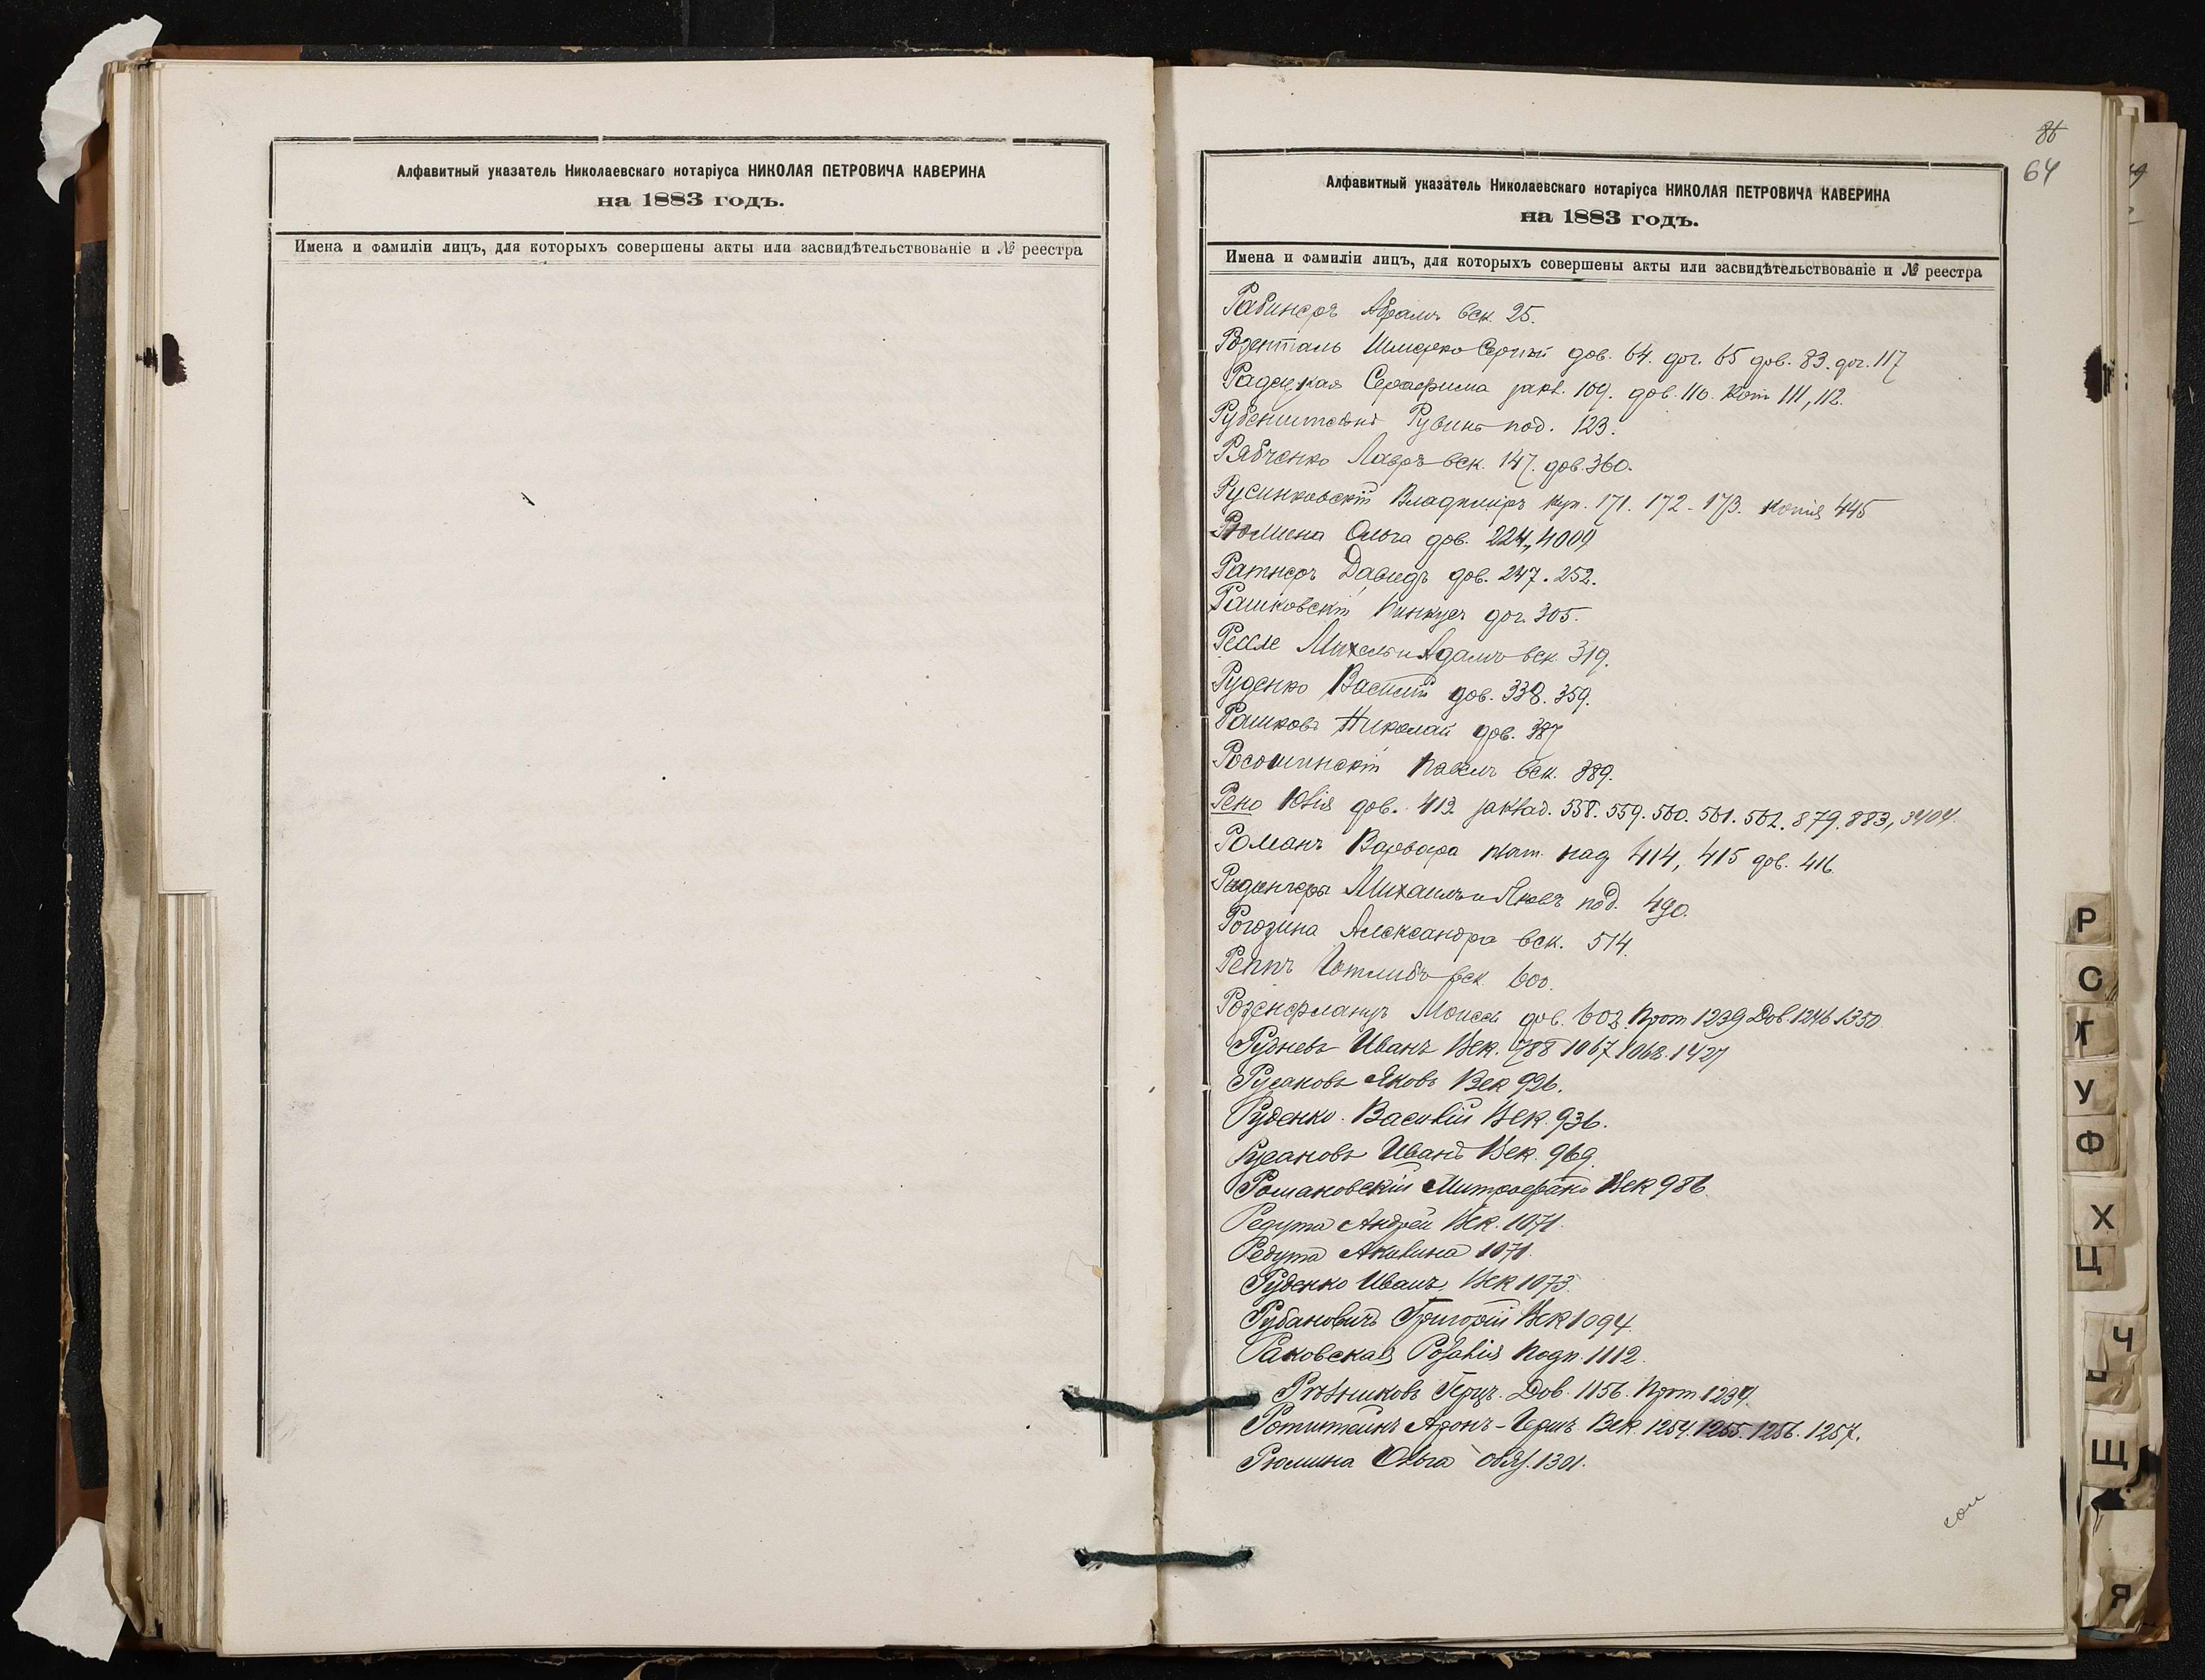 Алфавитный указатель Николаевскаго нотаріуса НИКОЛАЯ ПЕТРОВИЧА КАВЕРИНА
на 1883 годъ.
Имена и фамиліи лицъ, для которыхъ совершены акты или засвидѣтельствованіе и № реестра
86
64
Алфавитный указатель Николаевскаго нотаріуса НИКОЛАЯ ПЕТРОВИЧА КАВЕРИНА
на 1883 годъ.
Имена и фамиліи лицъ, для которыхъ совершены акты или засвидѣтельствованіе и № реестра
Рабинеръ Абрамъ век. 25.
Розенталь дов. 64. дог. 65 дов. 83. дог. 117
Радецкая Серафима 109. дов. 110. Коп 111, 112.
Рубенштейнъ Рувинъ под. 123.
Рябченко Лавръ век. 147. дов. 360.
Русинковскій Владиміръ куп. 171. 172 - 173. копія 445
Рюмина Ольга дов. 224, 1009
Ратнеръ Давидъ дов. 247. 252.
Рашковскій Пинкусъ дог. 305.
Михель и Адамъ век. 319.
Руденко Василій дов. 338. 359.
Рашковъ Николай дов. 387
Росошинскій Павелъ век. 389.
Рено Юлія дов. 413. заклад. 558. 559. 560. 561. 562. 879. 883,
Романъ Варвара 414, 415 дов. 416
Михаилъ и Яковъ под. 490.
Рогозина Александра век. 514.
Реппъ Готлибъ век. 600.
Моисей дов. 603. Прот 1239 Дов. 1246 1350
Рудневъ Иванъ Век. 788 1067 1068. 1427
Русаковъ Яковъ Век 926.
Руденко Василій Век. 936.
Русановъ Иванъ Век. 969
Романовскій Митрофанъ Век 986
Редута Андрей Век. 1071.
Редута Акилина 1071.
Руденко Иванъ Век 1073.
Рубановичъ Григорій Век 1094
Раковская Розалія Подп. 1112.
Рѣзниковъ Герцъ. Дов. 1156. Прот. 1234.
Ротштейнъ Аронъ-Гершъ Век. 1254. 1255. 1256. 1257.
Рюмина Ольга обяз. 1301.
Р
С
Т
У
Ф
Х
Ц
Ч
Щ
Я